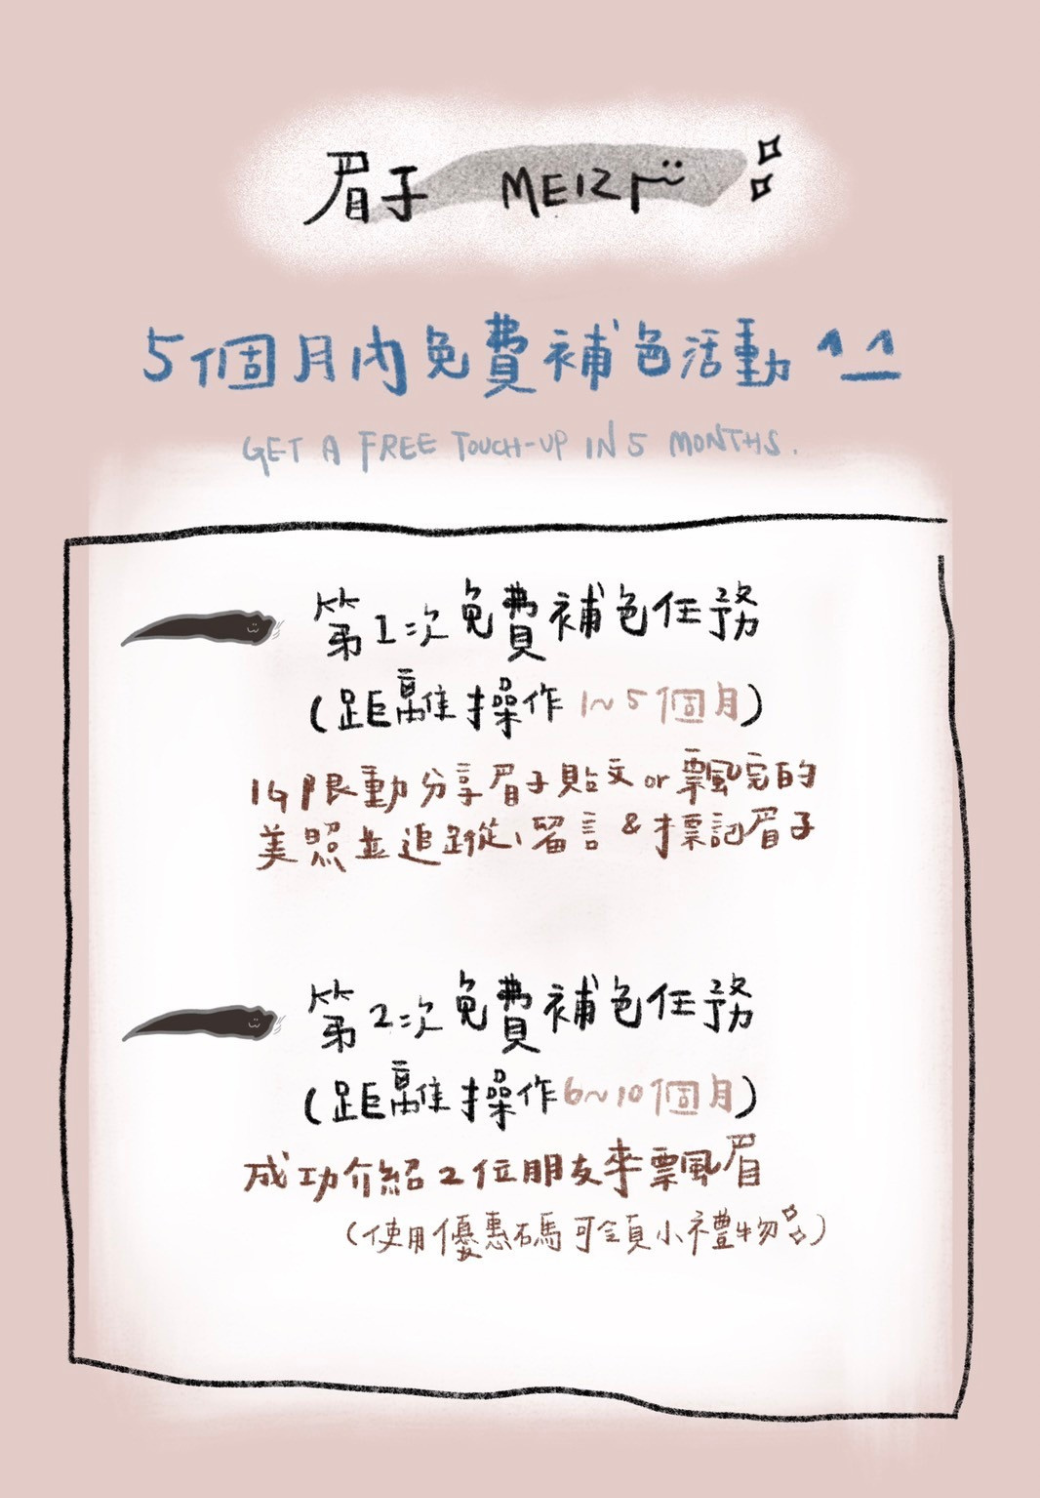 眉子 MEIZI
5個月內免費補色活動 ^_^
GET A FREE TOUCH-UP IN 5 MONTHS.
第1次免費補色任務
(距離操作1~5個月)
IG限動分享眉子貼文or飄完的
美照並追蹤、留言&標記眉子
第2次免費補色任務
(距離操作6~10個月)
成功介紹2位朋友來飄眉
(使用優惠碼可領小禮物)